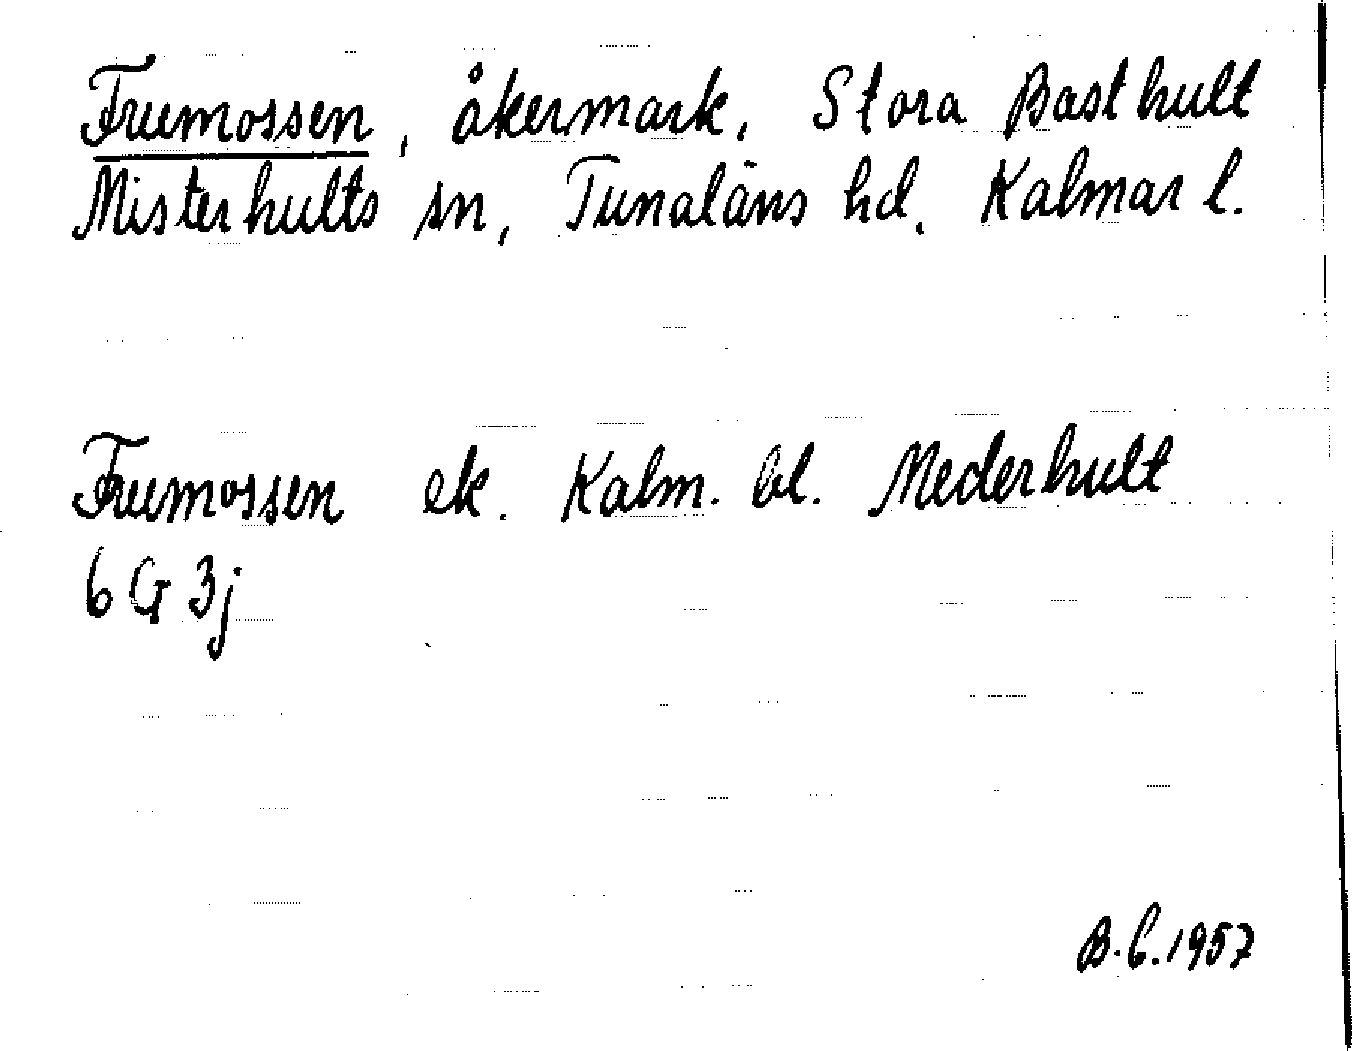 Frumossen, åkermark, Stora Basthult
Misterhults sn, Tunaläns hd. Kalmar l.
Frumossen ek. Kalm. bl. Mederhult
6 G 3j
B.C.1957